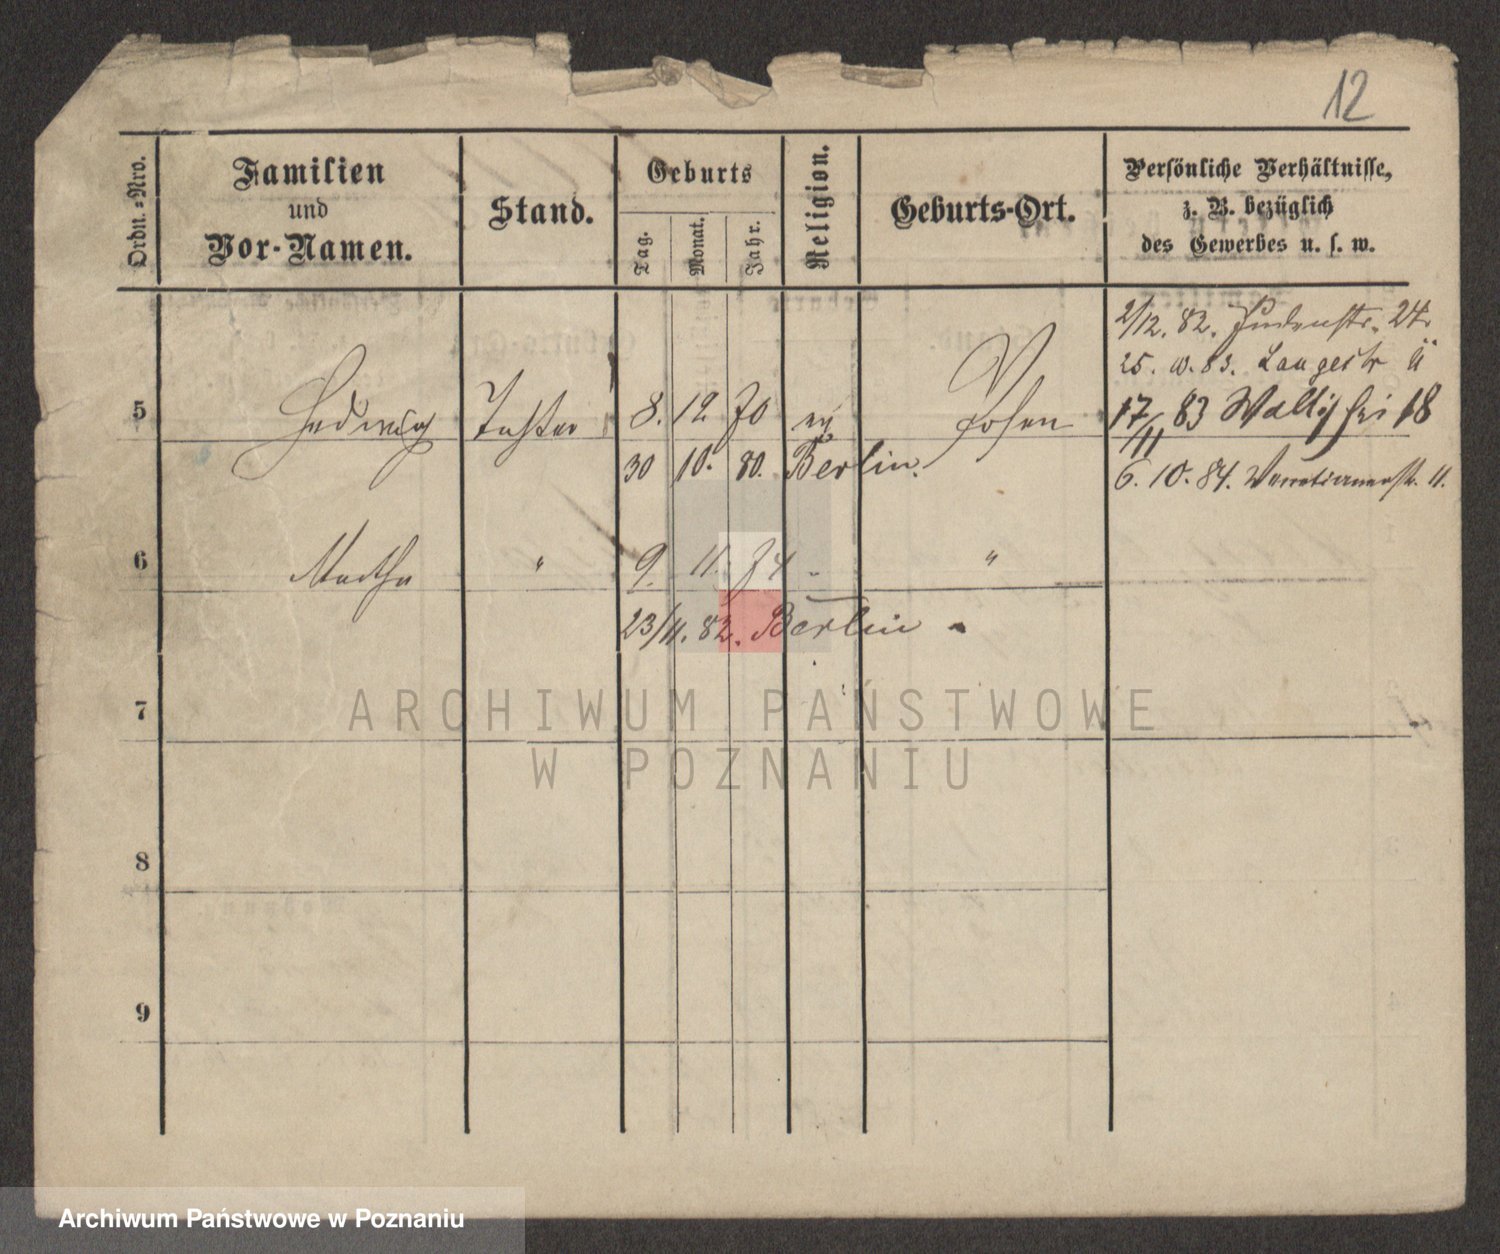 12
Ordn.-Nro.
Familien
und
Vor-Namen.
Stand.
Geburts
Tag.
Monat.
Jahr.
Religion.
Geburts-Ort.
Persönliche Verhältnisse,
z. B. bezüglich
des Gewerbes u. s. w.
2/12. 82. Judenstr. 24.
25. 83. Langestr
5 Hedwig Tochter 8. 12 70 Posen
17/11 83 Wallischei 18
30 10. 80. Berlin.
6. 10. 84. Venetianerstr. 11.
6 Martha " 9. 11. 74 "
23/11. 82. Berlin
7
ARCHIWUM PAŃSTWOWE
W POZNANIU
8
9
Archiwum Państwowe w Poznaniu